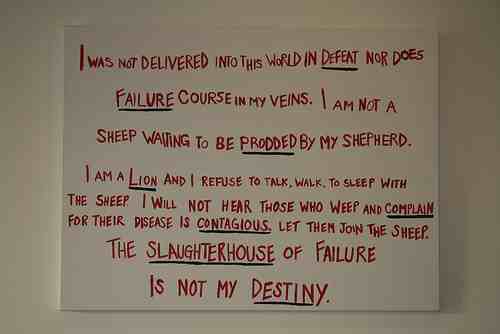 I WAS NOT DELIVERED INTO THIS WORLD IN DEFEAT NOR DOES
FAILURE COURSE IN MY VEINS. I AM NOT A
SHEEP WAITING TO BE PRODDED BY MY SHEPHERD.
I AM A LION AND I REFUSE TO TALK, WALK, TO SLEEP WITH
THE SHEEP I WILL NOT HEAR THOSE WHO WEEP AND COMPLAIN
FOR THEIR DISEASE IS CONTAGIOUS. LET THEM JOIN THE SHEEP.
THE SLAUGHTERHOUSE OF FAILURE
IS NOT MY DESTINY.